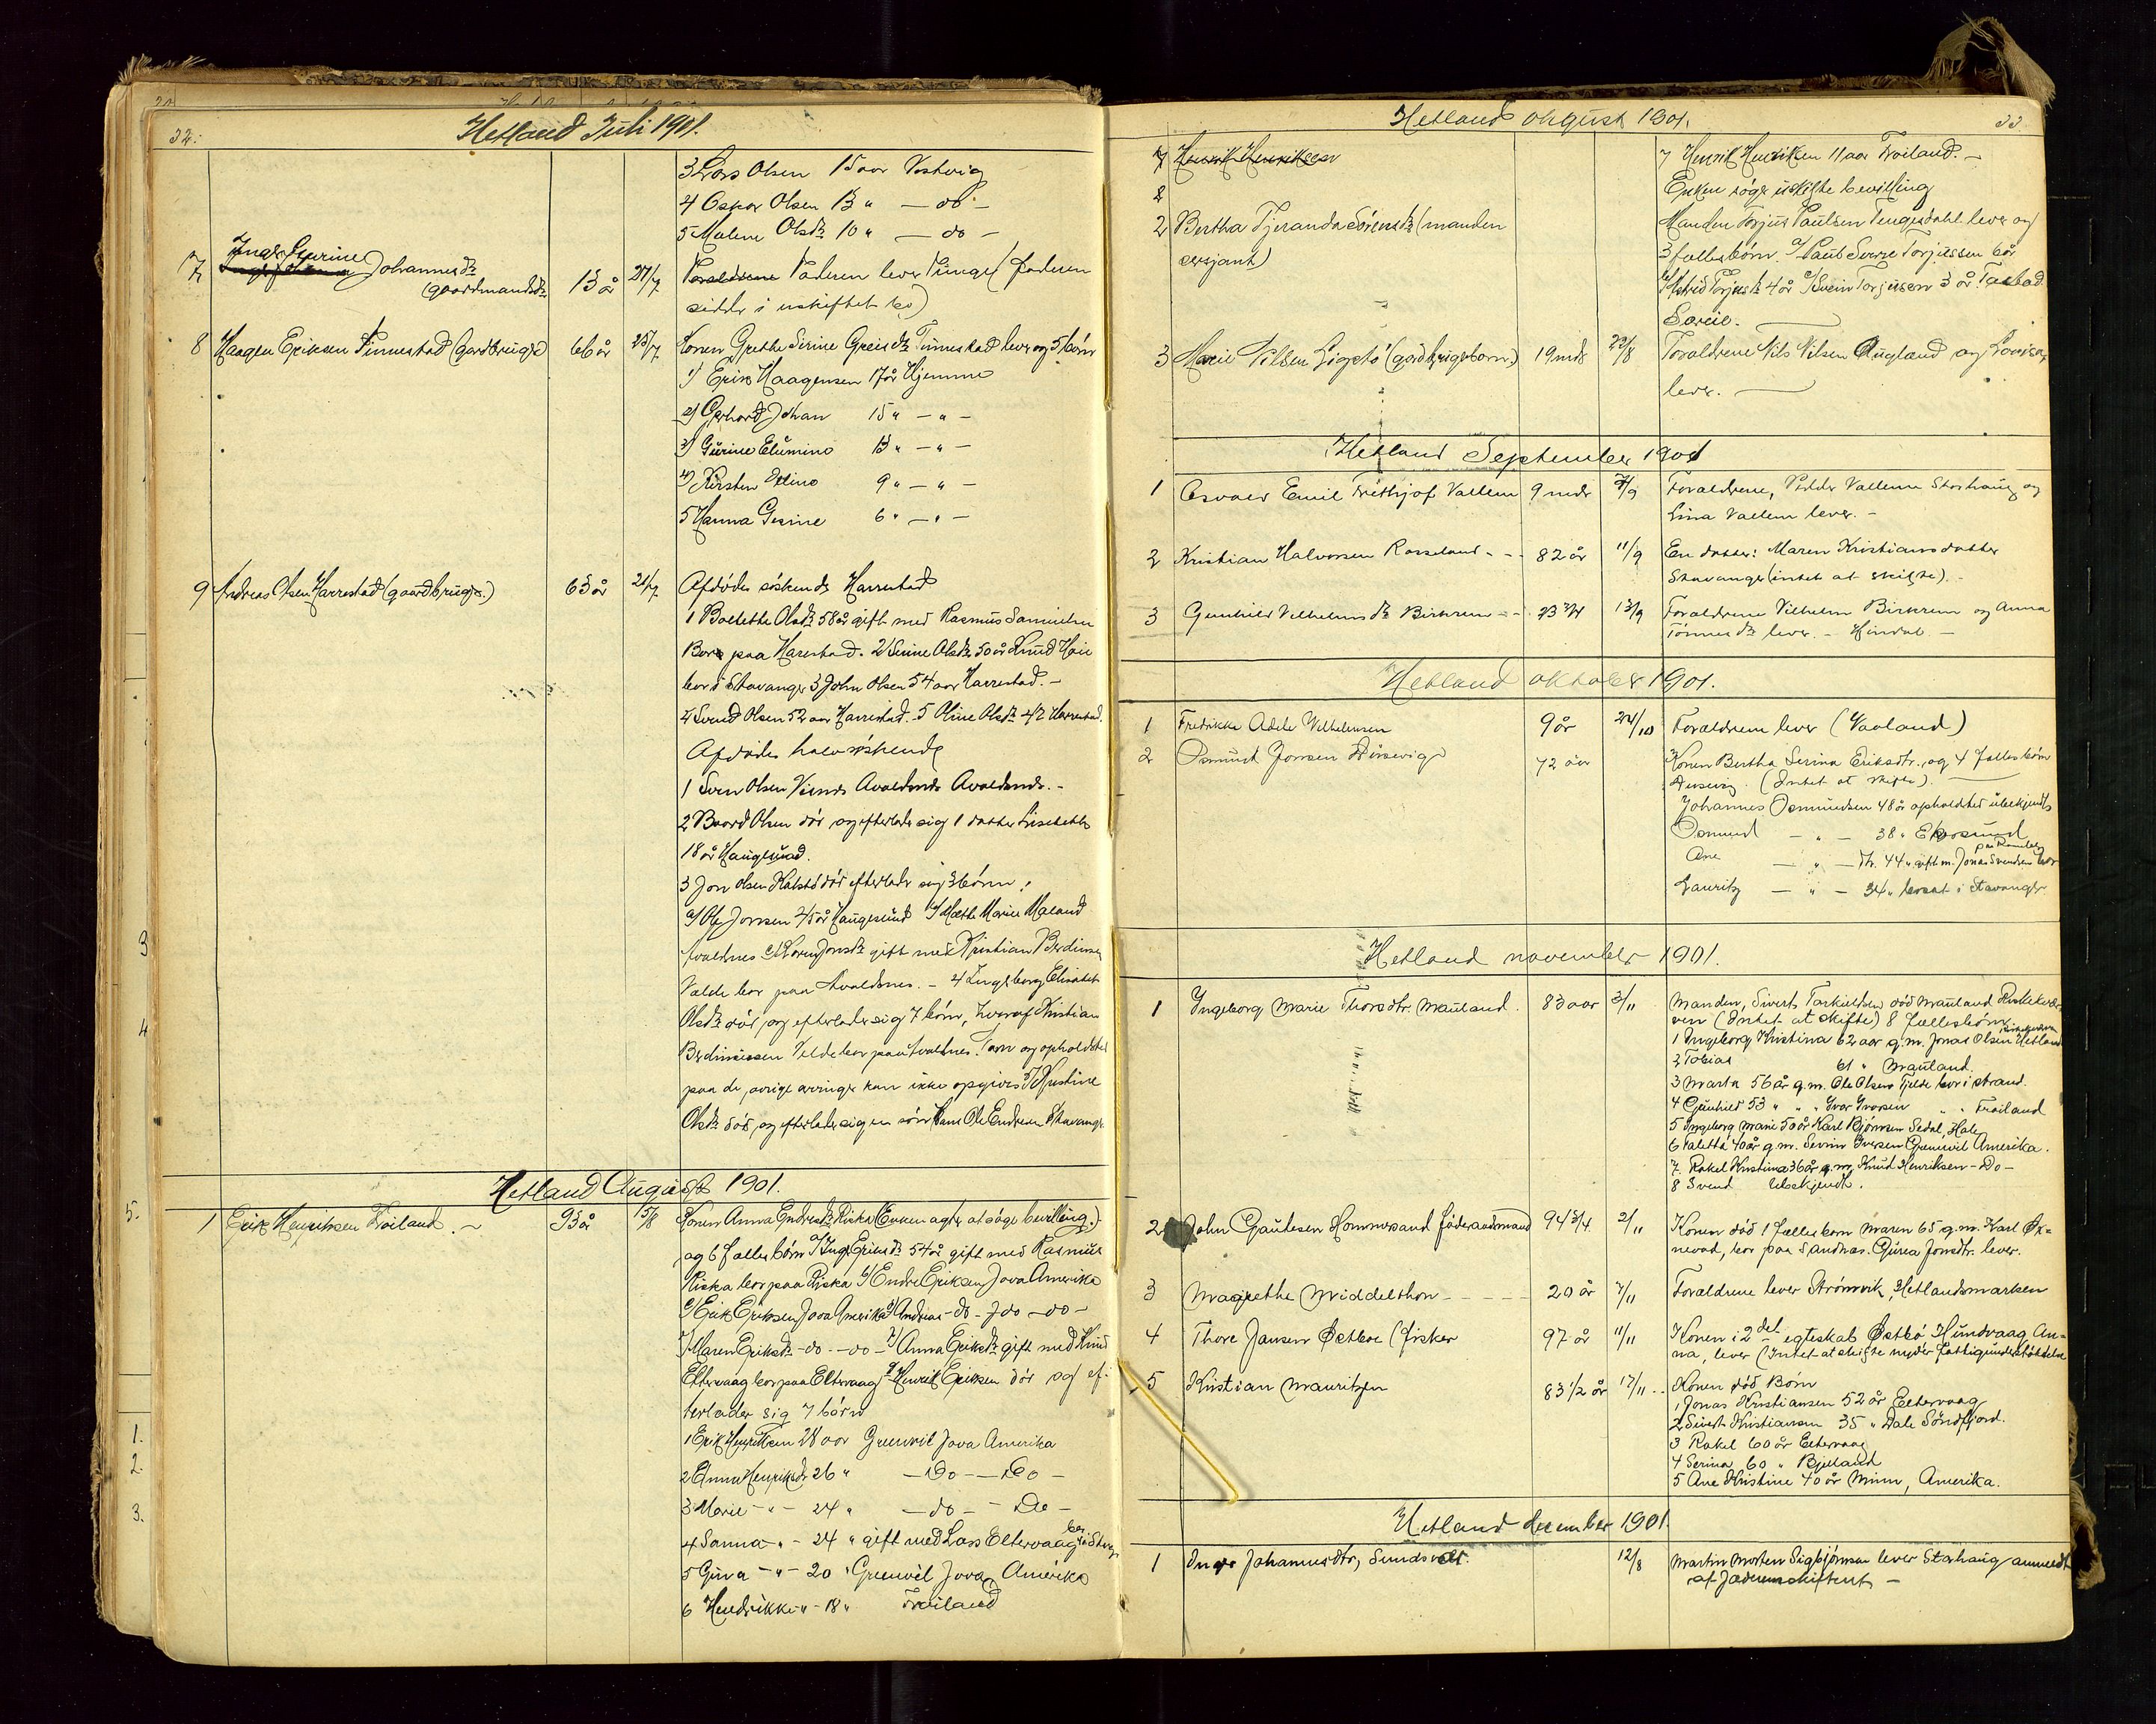 32.
Hetland Juli 1901.
3 Lars Olsen 15 aar Vestvig
4 Oskar Olsen 13 " — do —
5 Malene Olsdtr 10 " — do —
7 Inger Gurine Johannesdtr
(gaardmandsdtr 13 år 27/7 Faderen lever Tunge (faderen
sidder i uskiftet bo)
8 Haagen Eriksen Finnestad (gardbruger) 66 år 25/7 Konen Grethe Serine Greisdtr Finnestad lever og 5 børn
1) Erik Haagensen 17 år Hjemme
2) Gerhard Johan 15 " — " —
3) Gurine Elumine 13 " — " —
4) Kirsten Eline 9 " — " —
5 Hanna Gesine 6 " — " —
9 Andreas Olsen Harrestad (gaardbruger.) 63 år 21/7 Afdødes søskende Harrestad
1 Boelette Olsdtr 58 år gift med Rasmus Samuelsen
Bor paa Harestad. 2 Serine Olsdtr 50 år Knud Hoie
bor i Stavanger 3 John Olsen 54 aar Harrestad. —
4 Svend Olsen 52 aar Harrestad. 5 Oline Olsdtr 42 Harrestad.
Afdødes halvsøskende
1 Sven Olsen Visnes Avaldsnes Avaldsnes. —
2 Baard Olsen død og efterlader sig 1 datter Lisebeth
18 år Haugesund.
3 Jon Olsen Kalstø død efterlader sig 3 børn:
a/ Ole Jonsen 45 år Haugesund b/ Mette Marie Maland
Avaldsnes c/ Karen Jonsdtr gift med Kristian Berdinesen
Velde bor paa Avaldsnes. — 4 Ingeborg Elisabet
Olsdtr død, og efterlader sig 7 børn, hvoraf Kristian
Berdinesen Velde bor paa Avaldsnes. Navn og opholdsted
paa de øvrige arvinger kan ikke opgives 5/ Kristine
Olsdtr død og efterlader sig en søn Hans Ole Endresen Stavanger
Hetland August 1901.
1 Erik Henriksen Froiland. — 93 år 15/8 Konen Anna Endresdtr Riska (Enken agter at søge bevilling.)
og 6 fælles børn a/ Inger Eriksdtr 54 år gift med Rasmus
Riska bor paa Riska b/ Endre Eriksen Jova Amerika
c/ Erik Eriksen Jova Amerika d/ Andreas — do — Jdo — do —
e/ Maren Eriksdtr — do — do — f/ Anna Eriksdtr gift med Knud
Eltervaag bor paa Eltervaag g/ Henrik Eriksen død og ef-
terlader sig 7 børn
1 Erik Henriksen 28 aar Greenvil Jova Amerika
2 Anna Henriksdtr 26 " — Do — Do —
3 Marie — " — 24 " — do — Do —
4 Sanna — " — 24 " gift med Lars Eltervaag bor i Stvgr
5 Guva — " — 20 " Greenvil Jova Amerika
6 Hendrikke " — 18 " Froiland
Hetland August 1901. 33
7 Henrik Henriksen 7 Henrik Henriksen 11 aar Froiland. —
2 Enken søger uskifte bevilling
2 Bertha Tjeranda Sørensdtr (manden
sersjant) Manden Torjus Paulsen Tengesdahl lever og
3 fællesbørn. a/ Paul Sverre Torjussen 6 år
b/ Astrid Torjusdtr 4 år c/ Svein Torjusen 3 år. Tastad
Soreie.
3 Marie Nilsen Gigstø (gardbrugerbarn.) 19 mdr 22/8 Forældrene Nils Nilsen Augland og Lovise
lever.
Hetland September 1901
1 Osvald Emil Frithjof Vallem 9 mdr 3/9 Forældrene, Peder Vallem Storhaug og
Lina Vallem lever. —
2 Kristian Halvorsen Rosseland - - 82 år 11/9 En datter: Maren Kristiansdatter
Stavanger (intet at skifte). —
3 Gunhild Vilhelmsdtr Birkrem - - 13/9 Forældrene Vilhelm Birkrem og Anna
Tønnesdtr lever. — Hindal. —
Hetland oktober 1901.
1 Fredrikke Adele Vilhelmsen 9 år 24/10 Forældrene lever (Vaaland)
2 Osmund Jonsen Dusevig 72 år Konen Bertha Serina Eriksdtr. og 4 fælles børn
Dusevig (Intet at skifte).
Johannes Osmundsen 48 år opholdsted ubekjendt
Osmund — " — 38 " Egersund
Ane — " — dtr. 44 " gift m. Jonas Svendsen bor paa Ramsberg
Lauritz — " — 34 " bosat i Stavanger
Hetland november 1901.
1 Ingeborg Marie Thorsdtr. Mauland. 83 aar 3/11 Manden, Sivert Torkieldsen død Mauland Riskekvær-
ven (Intet at skifte) 8 fællesbørn
1 Ingeborg Kristina 62 aar g.m. Jonas Olsen Hetland
2 Tobias 61 " Mauland.
3 Marta 56 år g.m. Ole Olsen Tjelde bor i Strand.
4 Gunhild 53 " " " Ivar Ivarsen " " Froiland
5 Ingeborg Marie 50 år Karl Bjørnsen Sedal, Hale
6 Valetta 40 år g.m. Sevrin Iversen Greenvil Amerika.
7. Rakel Kristina 36 år g.m. Knud Henriksen — Do —
8 Svend Ubekjendt.
2 John Gautesen Hommesand føderaadsmand 94 3/4 2/11 Konen død 1 fælles barn Maren 65 g.m. Karl Øx-
nevad, bor paa Sandnæs. Gurea Jonsdtr. lever.
3 Magrethe Middelthon - - - - 20 år 7/11 Forældrene lever Strømvik, Hetlandsmarken
4 Thore Jansen Østbøe (fisker 97 år 11/11 Konen i 2det egteskab Østbø Hundvaag An-
na, lever (Intet at skifte nyder fattigunderstøttelse
5 Kristian Mauritzen 83 1/2 år 17/11 Konen død Børn
1 Jonas Kristiansen 52 år Eltervaag
2 Sivert Kristiansen 35 " Dale Søndfjord.
3 Rakel 60 år Eltervaag
4 Serina 60 " Bjelland
5 Ane Kristine 40 år Minn, Amerika.
Hetland december 1901.
1 Inger Johannesdtr, Sundsvoll. 12/8 Martin Morten Sigbjørnsen lever Storhaug anmeldt
af Jæderen skifteret —
3
4
5.
1.
2.
3.